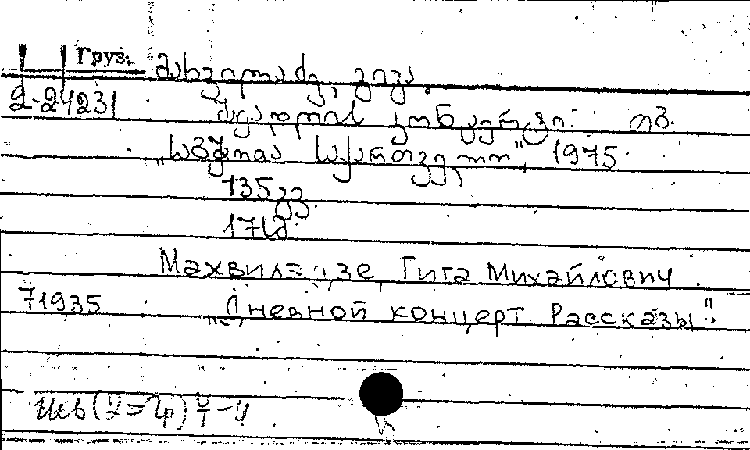 Груз. მახვილაძე, გიგა.
2-24231 მცადლის კონცერტი. თბ.
„საბჭოთა საქართველო", 1975.
135გვ.
17ს.
Махвиладзе, Гига Михайлович
71935 „Дневной концерт. Рассказы".